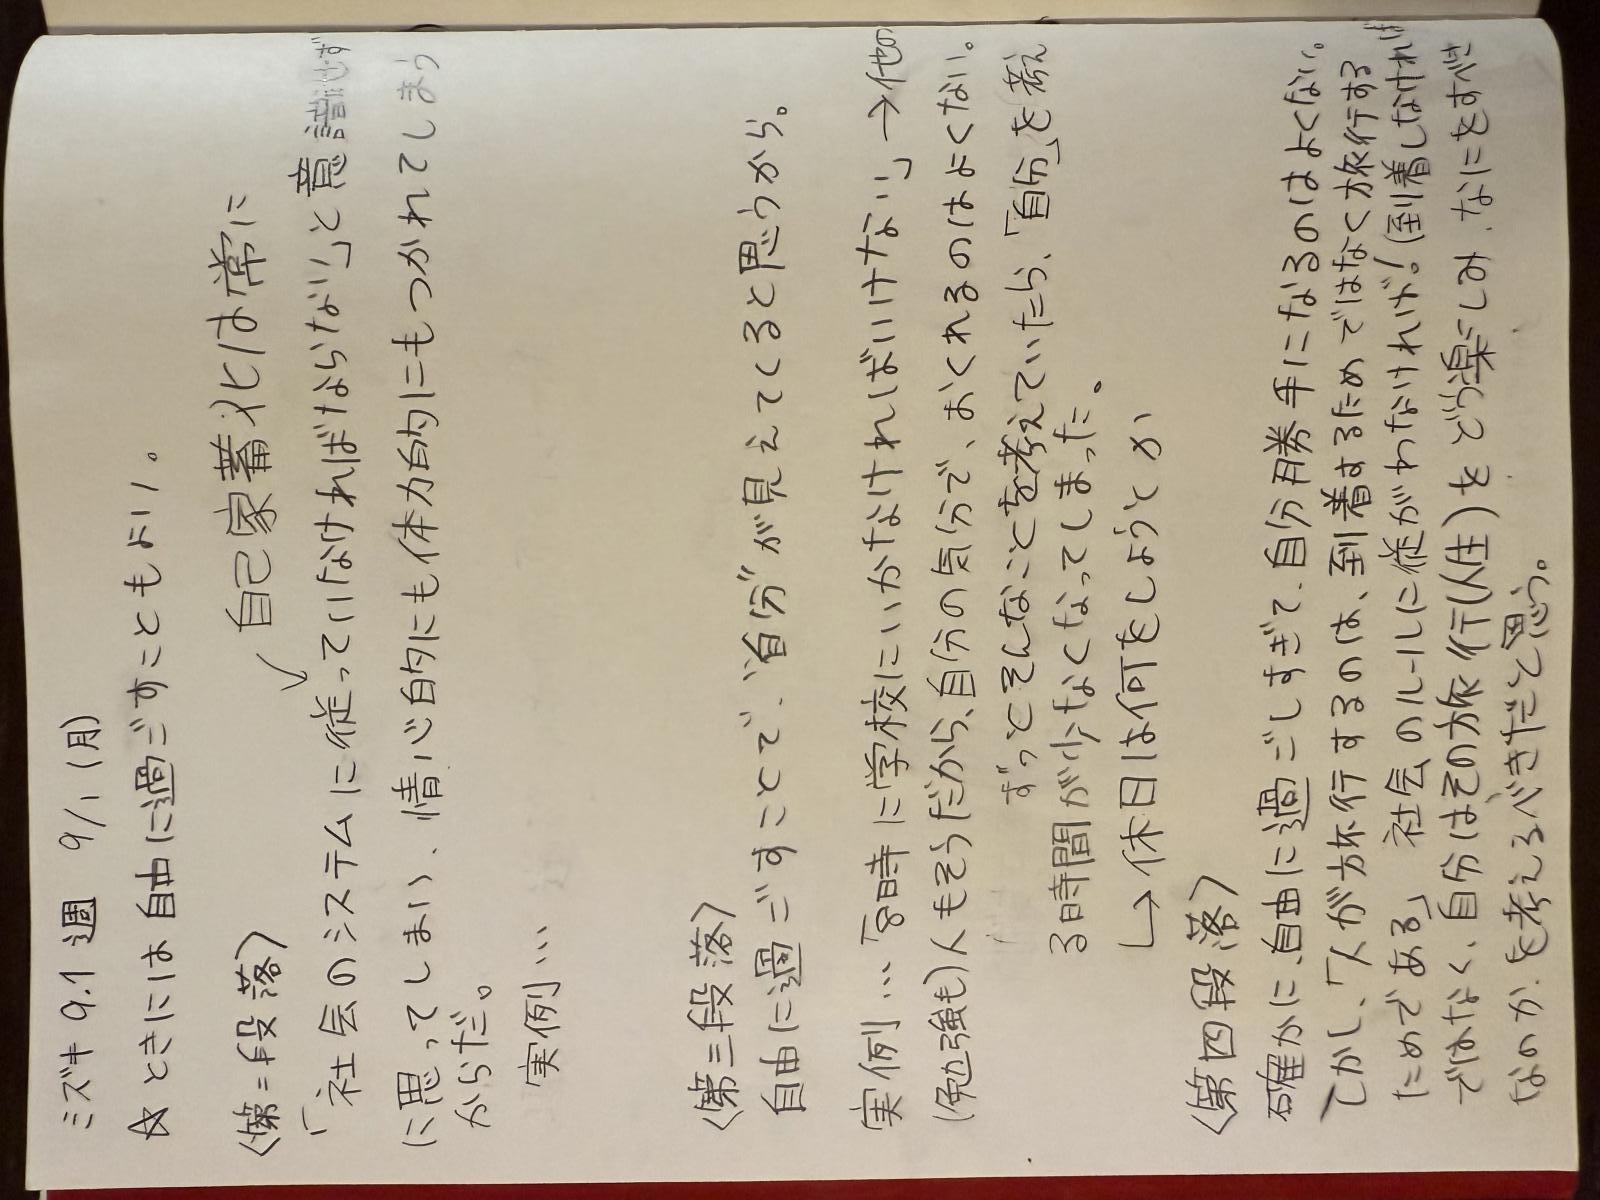 ミズキ 9.1週 9/1 (月)
☆ ときには自由に過ごすこともよい。
〈第二段落〉
自己家畜化は常に
「社会のシステムに従っていなければならない」と意識せず
に思ってしまい、情心的にも体力的にもつかれてしまう
からだ。
実例…
〈第三段落〉
自由に過ごすことで、“自分”が見えてくると思うから。
実例…「8時に学校にいかなければいけない」→他の
(勉強も)人もそうだから、自分の気分で、おくれるのはよくない。
ずっとそんなことを考えていたら、「自分」を考え
る時間が少なくなってしまった。
↳休日は何をしようとか
〈第四段落〉
確かに、自由に過ごしすぎて、自分勝手になるのはよくない。
しかし、「人が旅行するのは、到着するためではなく旅行する
ためである」 社会のルールに従がわなければ!(到着しなければ
ではなく、自分はその旅行(人生)をどう楽しみ、なにをすべき
なのか、を考えるべきだと思う。